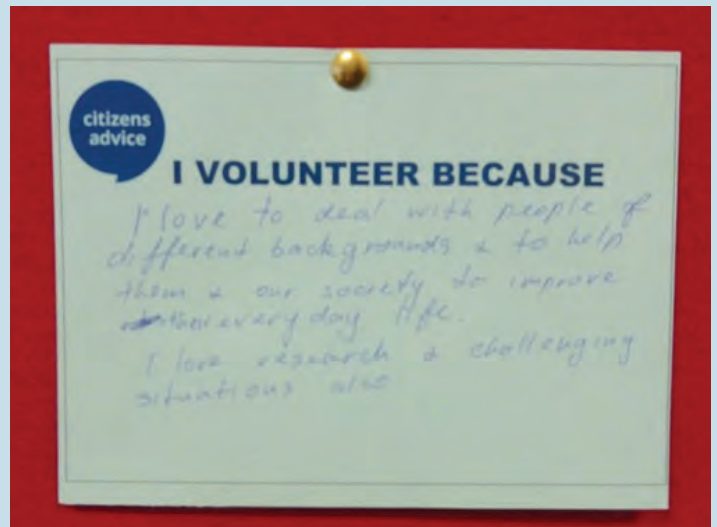 citizens
advice
I VOLUNTEER BECAUSE
I love to deal with people of
different backgrounds & to help
them & our society to improve
every day life.
I love research & challenging
situations also